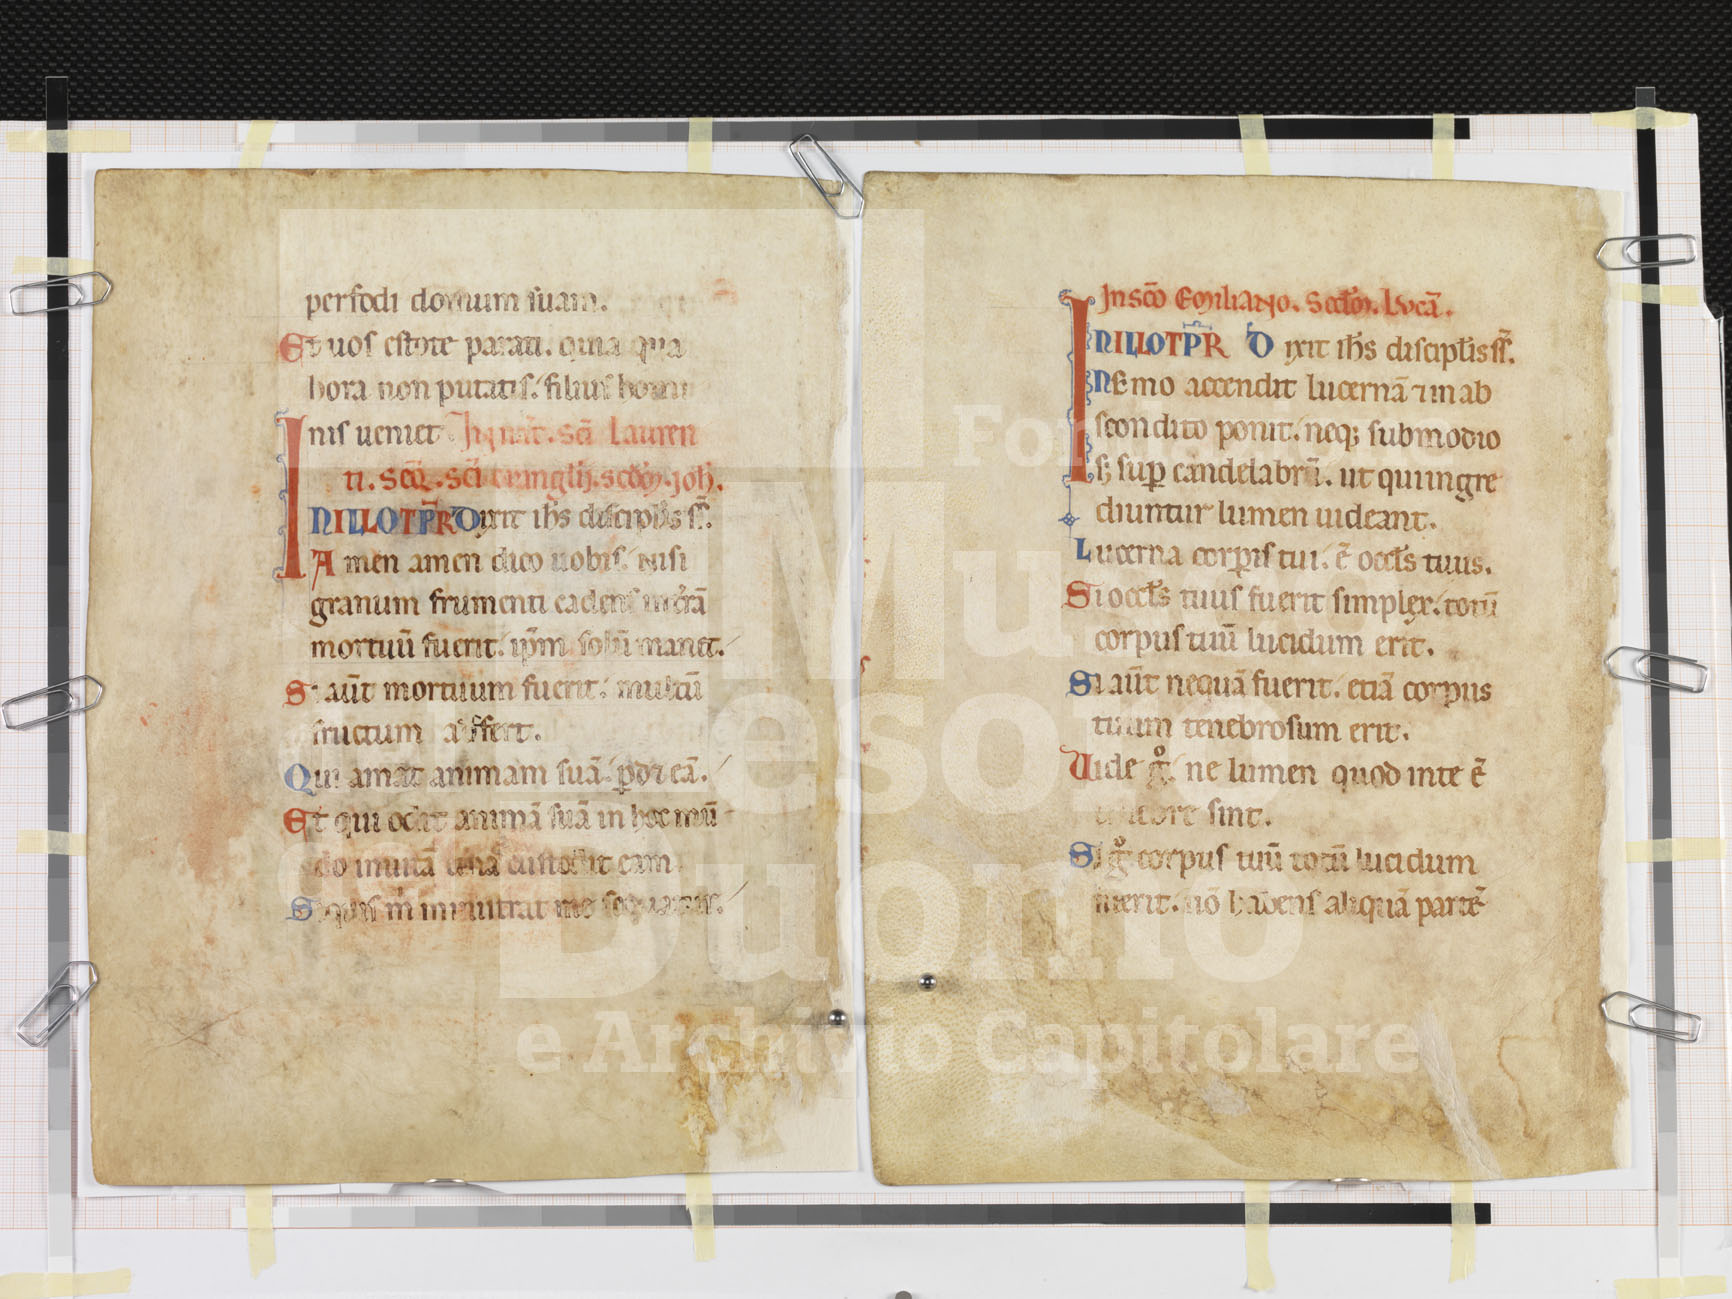 perfodi domum suam.
Et uos estote parati. quia qua
hora non putatis. filius homi
nis ueniet Ignat. sci Lauren
ti. scđ. sci euangłij. scđm. joħ.
IN ILLO TP̄R Dixit ihs discipłis ss̄.
Amen amen dico uobis. nisi
granum frumenti cadens in t̄rā
mortuū fuerit. ip̄m solū manet.
Si aūt mortuum fuerit. multū
fructum affert.
Qui amat animam suā. ꝑdet eā.
Et qui odit animā suā in hoc mū
do in uitā custodit eam
Siquis m̄ ministrat me sequatur.
In scō Emiliano. Scđm. Lvcā.
IN ILLO TP̄R Dixit ihs discipłis ss̄.
Nemo accendit lucernā ⁊ in ab
scondito ponit. neqꝫ sub modio
sꝫ suꝑ candelabrū. ut qui ingre
diuntur lumen uideant.
Lucerna corꝑis tui. ē occłs tuus.
Si occłs tuus fuerit simplex. totū
corpus tuū lucidum erit.
Si aūt nequā fuerit. etiā corpus
tuum tenebrosum erit.
Uide gͦ. ne lumen quod in te ē
tenebre sint.
Si gͦ corpus tuū totū lucidum
fuerit. nō habens aliquā partē
Fon
Museo
Duomo
e Archivio Capitolare